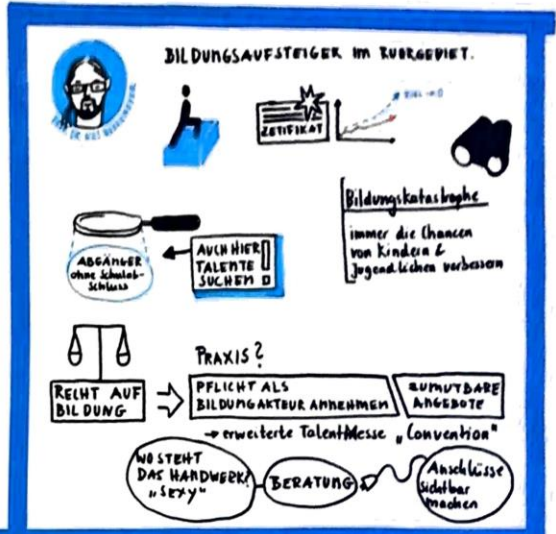 BILDUNGSAUFSTEIGER IM RUHRGEBIET.
ZETIFIKAT
Bildungskatastrophe
immer die Chancen
von Kindern &
Jugendlichen verbessern
ABGÄNGER
ohne Schulab-
schluss
AUCH HIER
TALENTE
SUCHEN!
RECHT AUF
BILDUNG
PRAXIS?
PFLICHT ALS
BILDUNGAKTEUR ANNEHMEN
ZUMUTBARE
ANGEBOTE
→ erweiterte TalentMesse „Convention"
WO STEHT
DAS HANDWERK?
„SEXY"
BERATUNG
Anschlüsse
sichtbar
machen